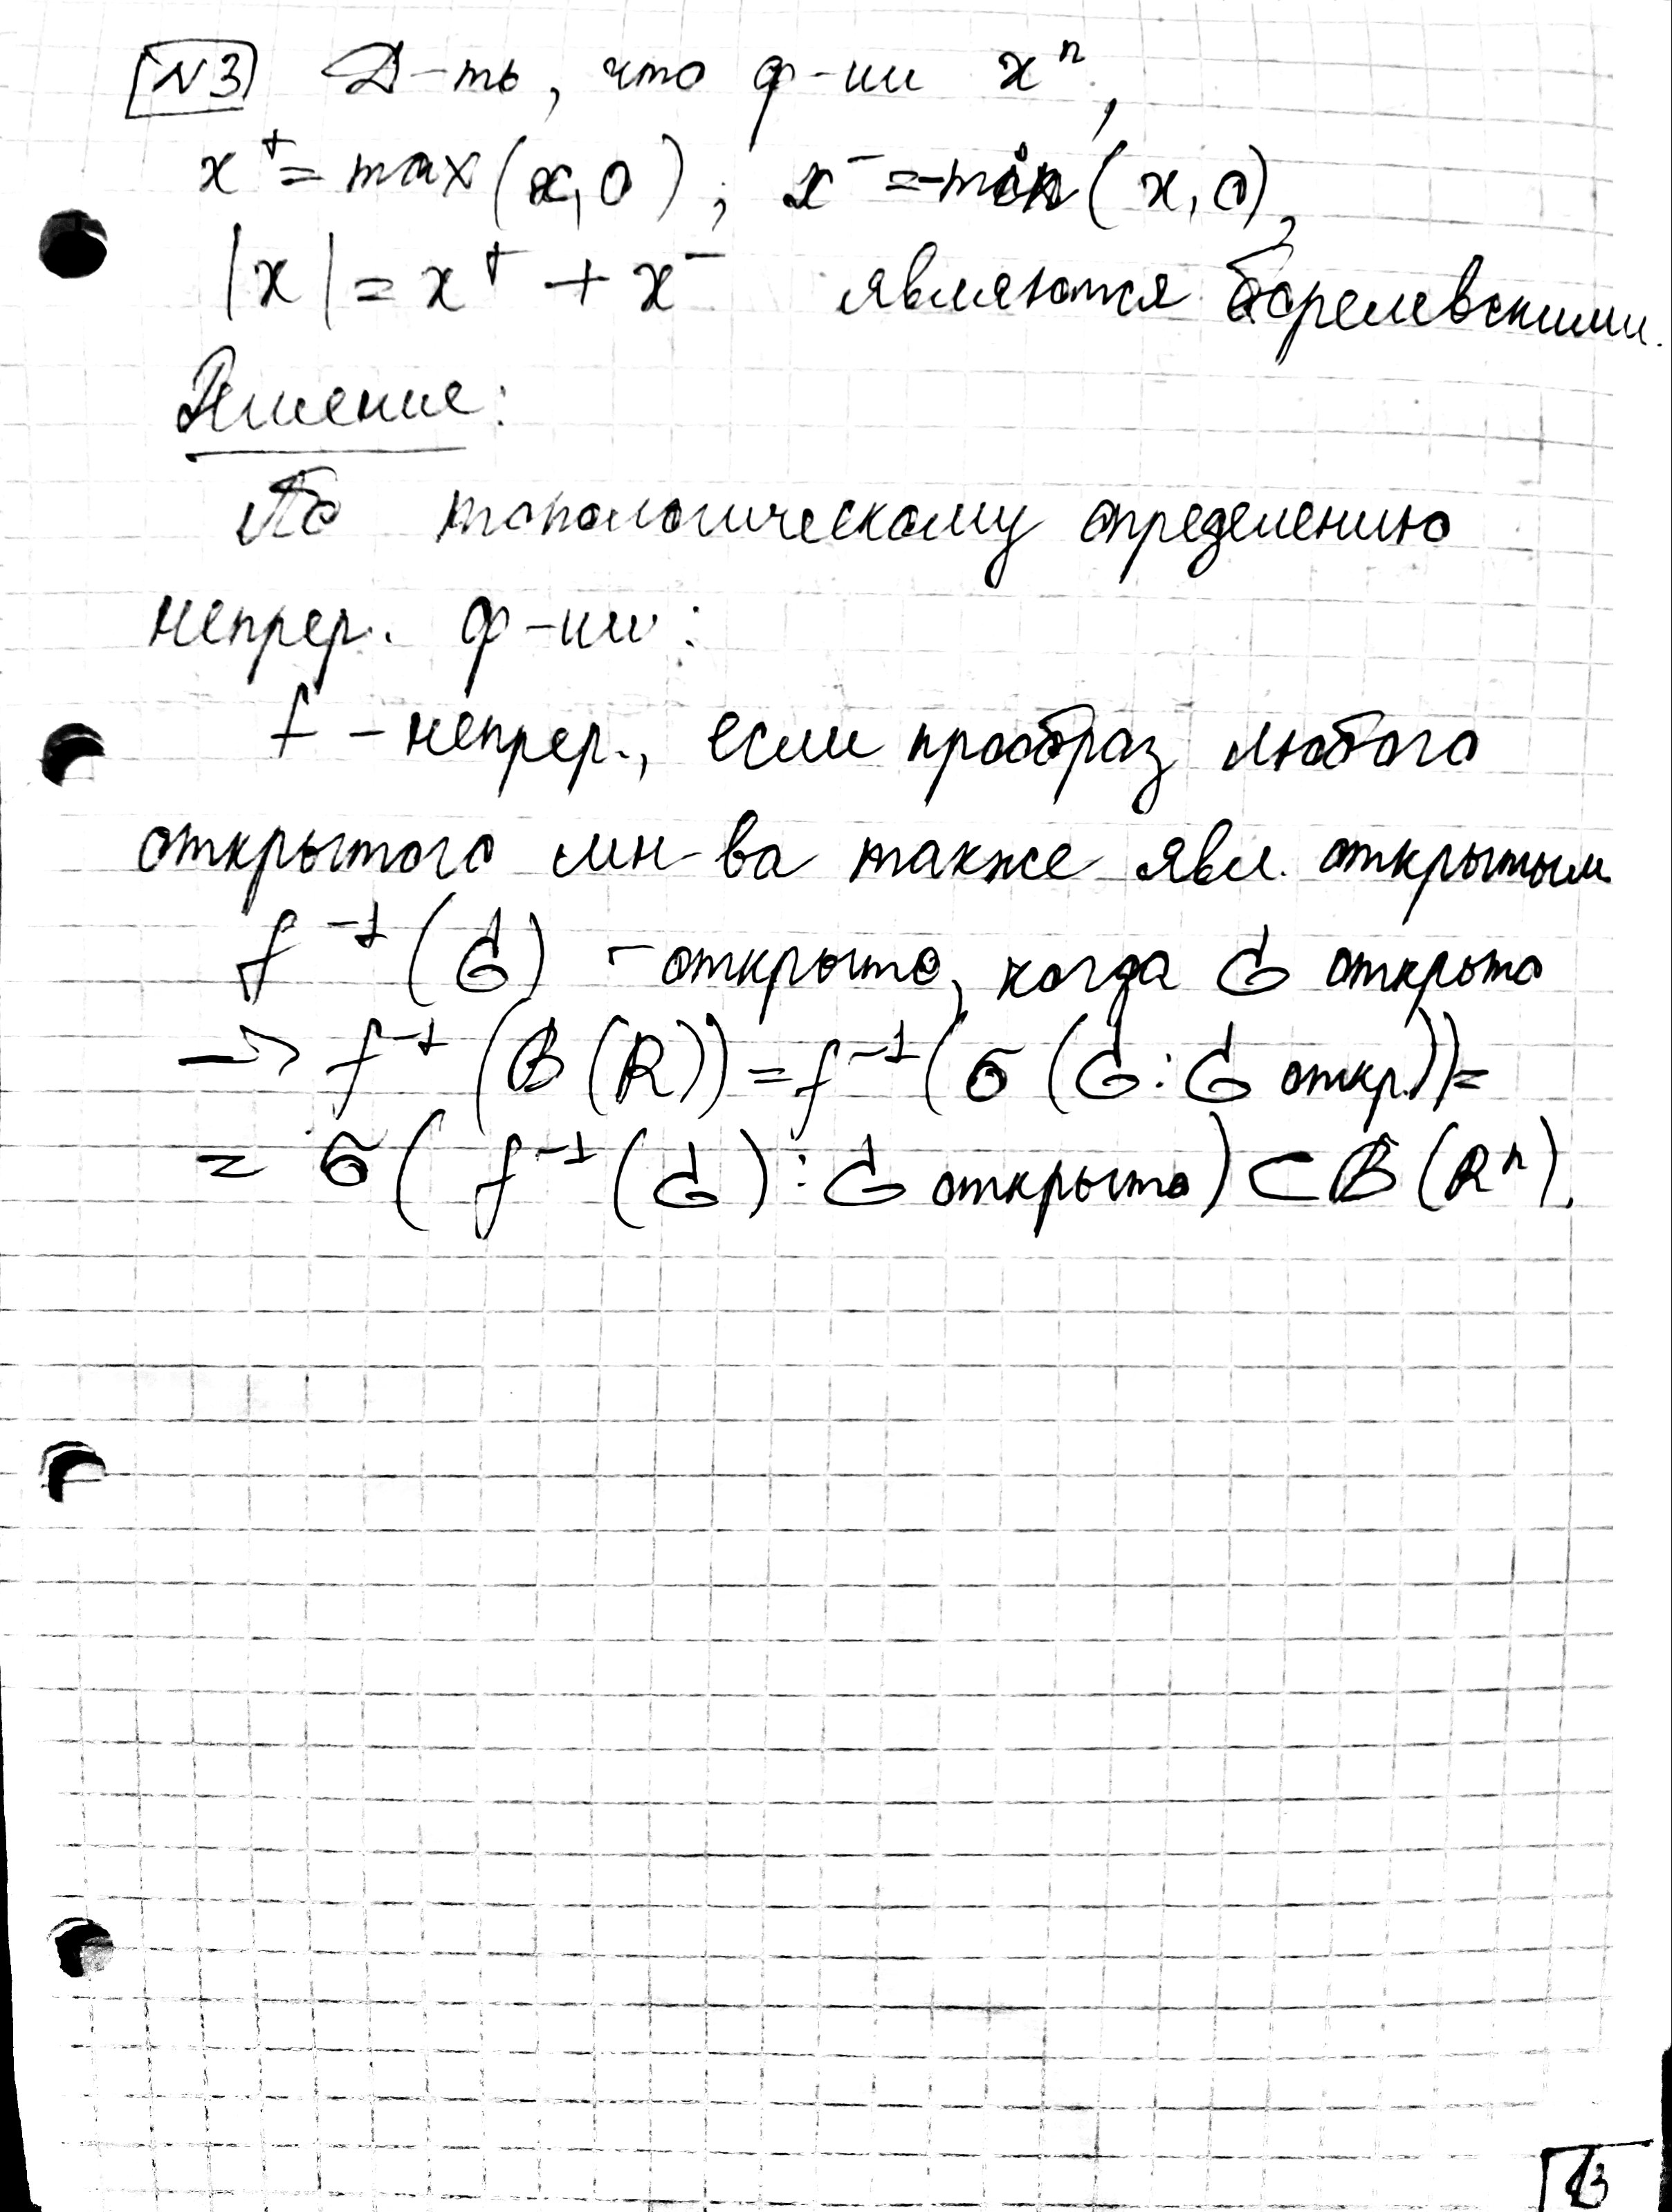 N3 Д-ть, что ф-ии xⁿ,
x⁺ = max(x, 0); x⁻ = -min(x, 0),
|x| = x⁺ + x⁻ являются борелевскими.
Решение:
По топологическому определению
непрер. ф-ии:
f - непрер., если прообраз любого
открытого мн-ва также явл. открытым
f⁻¹(G) - открыто, когда G открыто
→ f⁻¹(B(R)) = f⁻¹(σ(G: G откр.)) =
= σ(f⁻¹(G): G открыто) ⊂ B(Rⁿ).